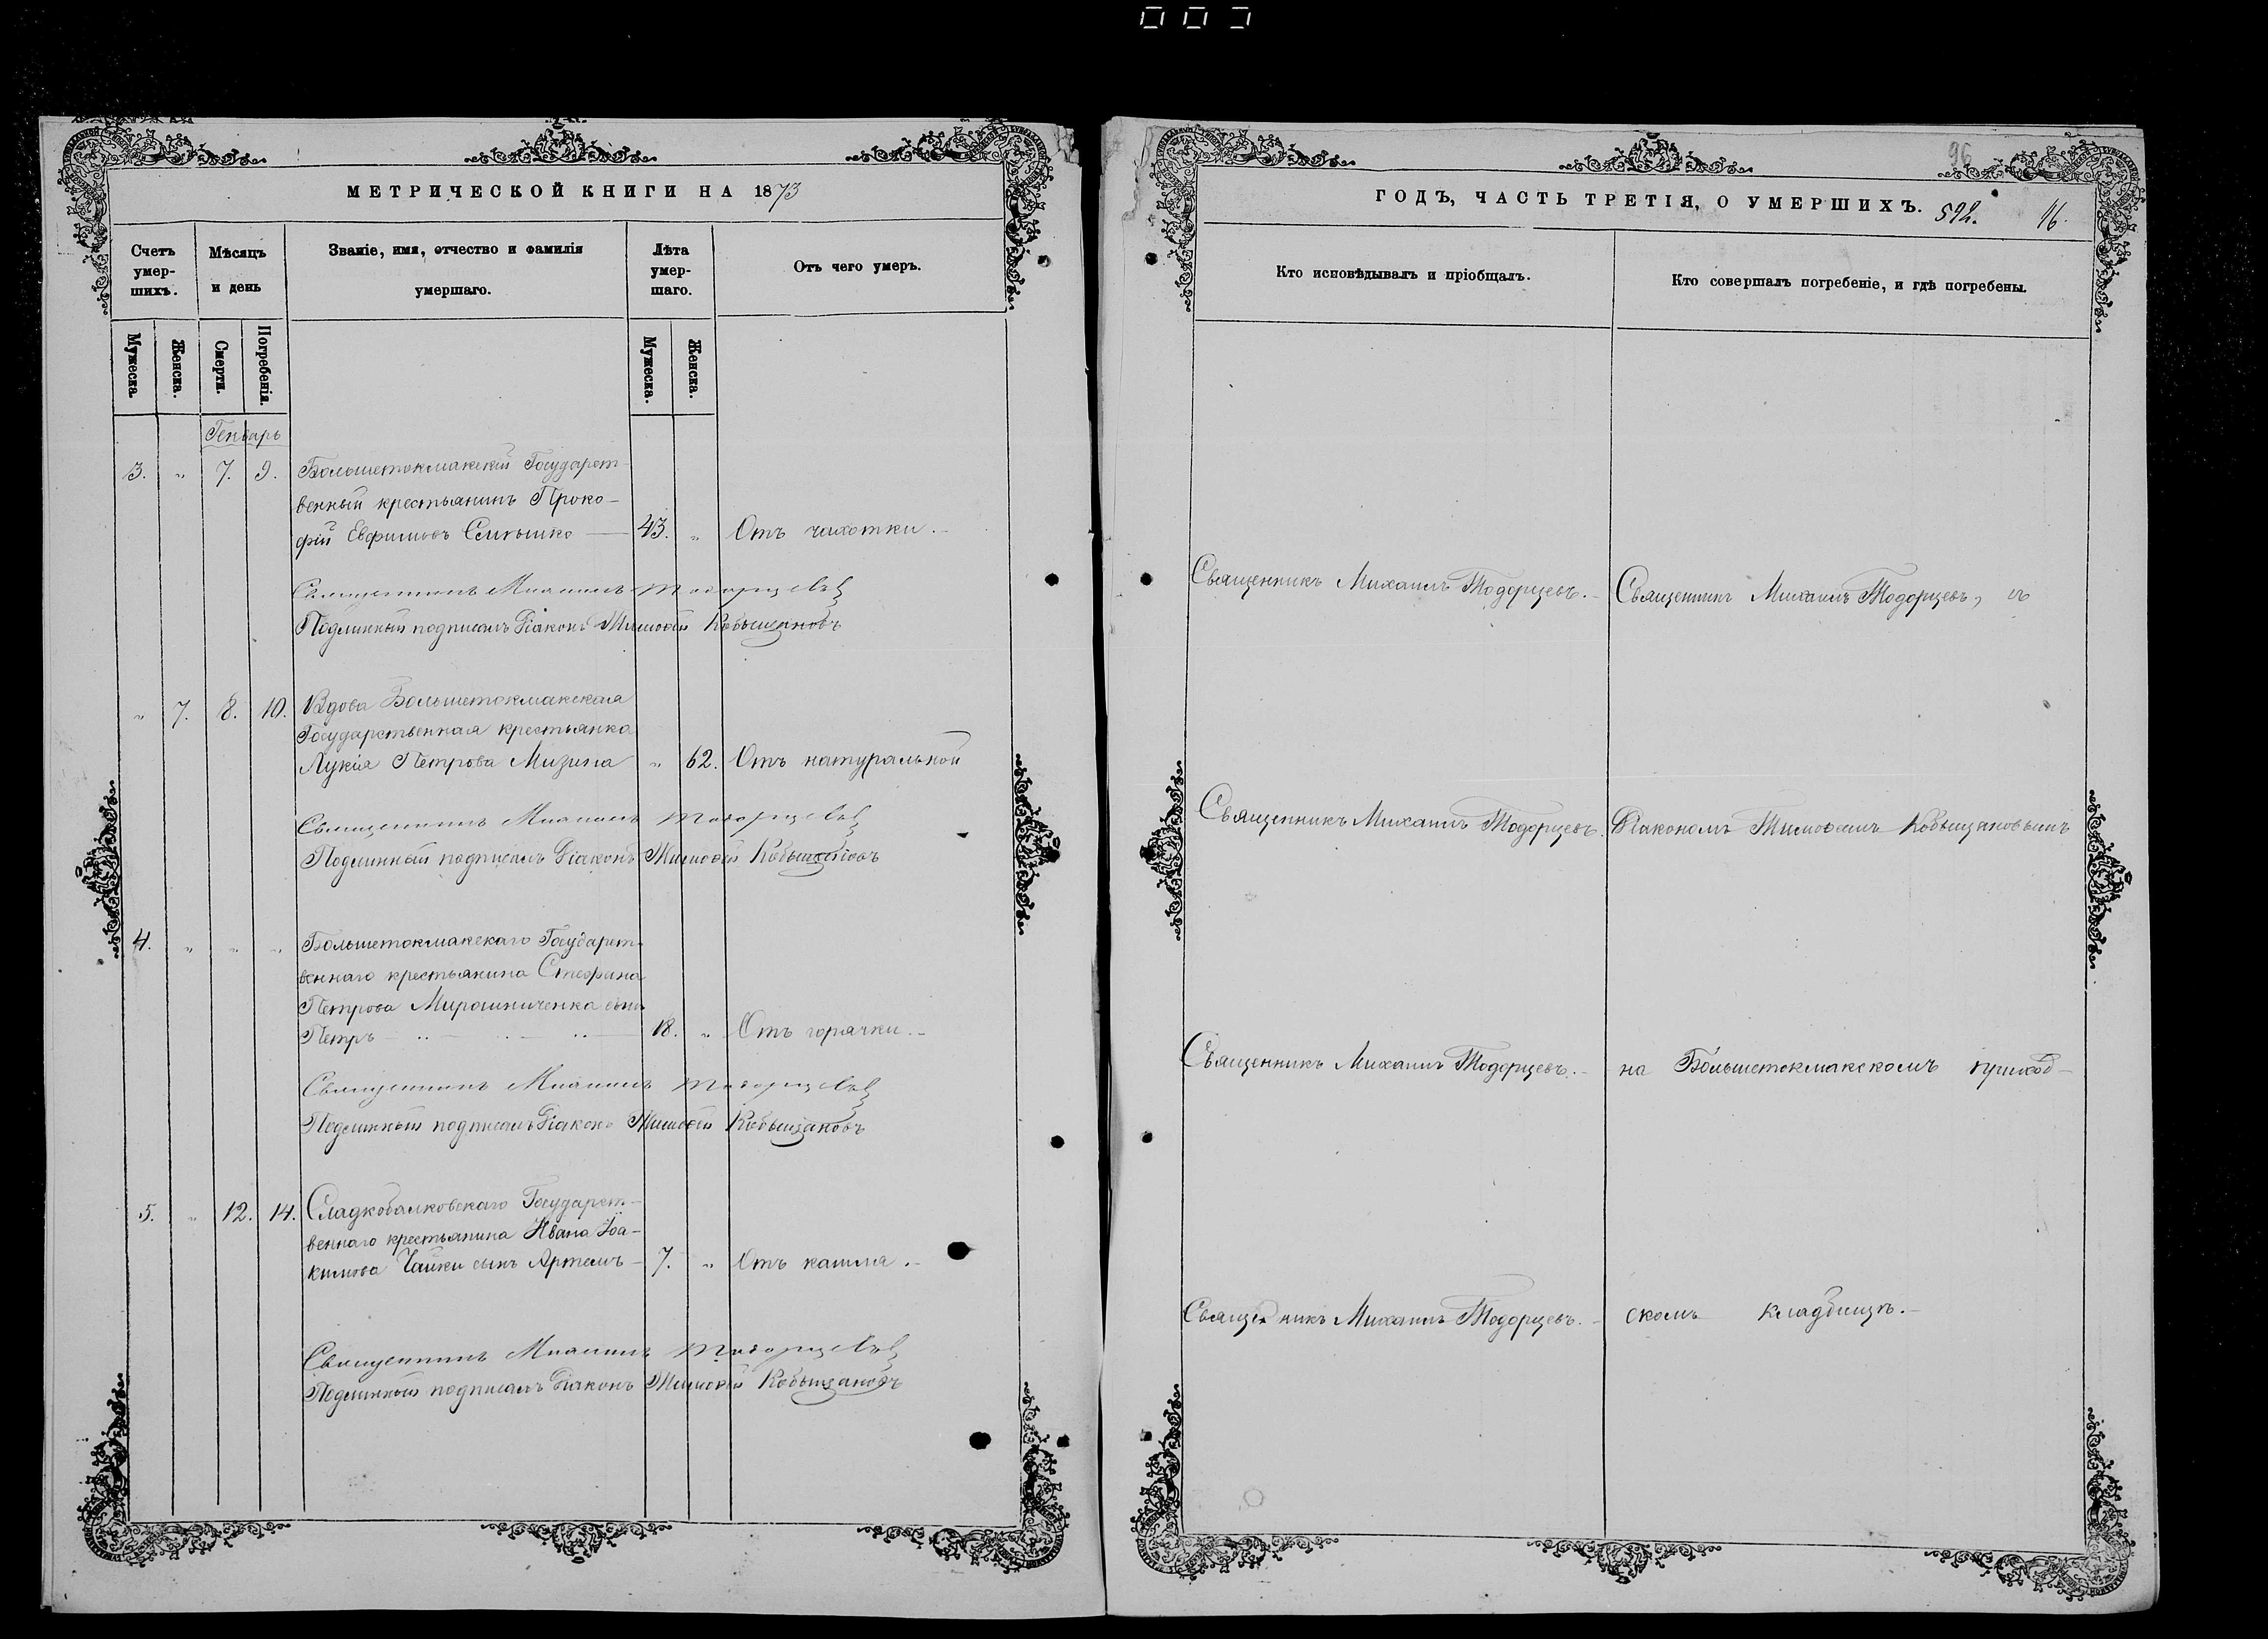 МЕТРИЧЕСКОЙ КНИГИ НА 1873
Счетъ умер-шихъ.
Мѣсяцъ и день
Званіе, имя, отчество и фамилія умершаго.
Лѣта умер-шаго.
Отъ чего умеръ.
Мужеска.
Женска.
Смерти.
Погребенія.
Мужеска.
Женска.
Генварь
3. „ 7. 9. Большетокмакскій Государст-
венный крестьянинъ Проко-
фій Евфимовъ 43. „ Отъ чахотки.
Священникъ Михаилъ Тодорцевъ
Подлинный подписалъ Діаконъ Тимофей Кобыщановъ
„ 7. 8. 10. Вдова Большетокмакская
Государственная крестьянка
Лукія Петрова Мизина „ 62. Отъ натуральной
Священникъ Михаилъ Тодорцевъ
Подлинный подписалъ Діаконъ Тимофей Кобыщановъ
4. „ „ „ Большетокмакскаго Государст-
веннаго крестьянина Стефана
Петрова Мирошниченка сынъ
Петръ 18. „ Отъ горячки.
Священникъ Михаилъ Тодорцевъ
Подлинный подписалъ Діаконъ Тимофей Кобыщановъ
5. „ 12. 14. Сладкобалковскаго Государст-
веннаго крестьянина Ивана Іоа-
кимова Чайки сынъ Артемъ 7. „ Отъ кашля.
Священникъ Михаилъ Тодорцевъ
Подлинный подписалъ Діаконъ Тимофей Кобыщановъ
96
ГОДЪ, ЧАСТЬ ТРЕТІЯ, О УМЕРШИХЪ. 592. 16.
Кто исповѣдывалъ и пріобщалъ.
Кто совершалъ погребеніе, и гдѣ погребены.
Священникъ Михаилъ Тодорцевъ. Священникъ Михаилъ Тодорцевъ, съ
Священникъ Михаилъ Тодорцевъ. Діакономъ Тимофеемъ Кобыщановымъ
Священникъ Михаилъ Тодорцевъ. на Большетокмакскомъ приход-
Священникъ Михаилъ Тодорцевъ. скомъ кладбищѣ.